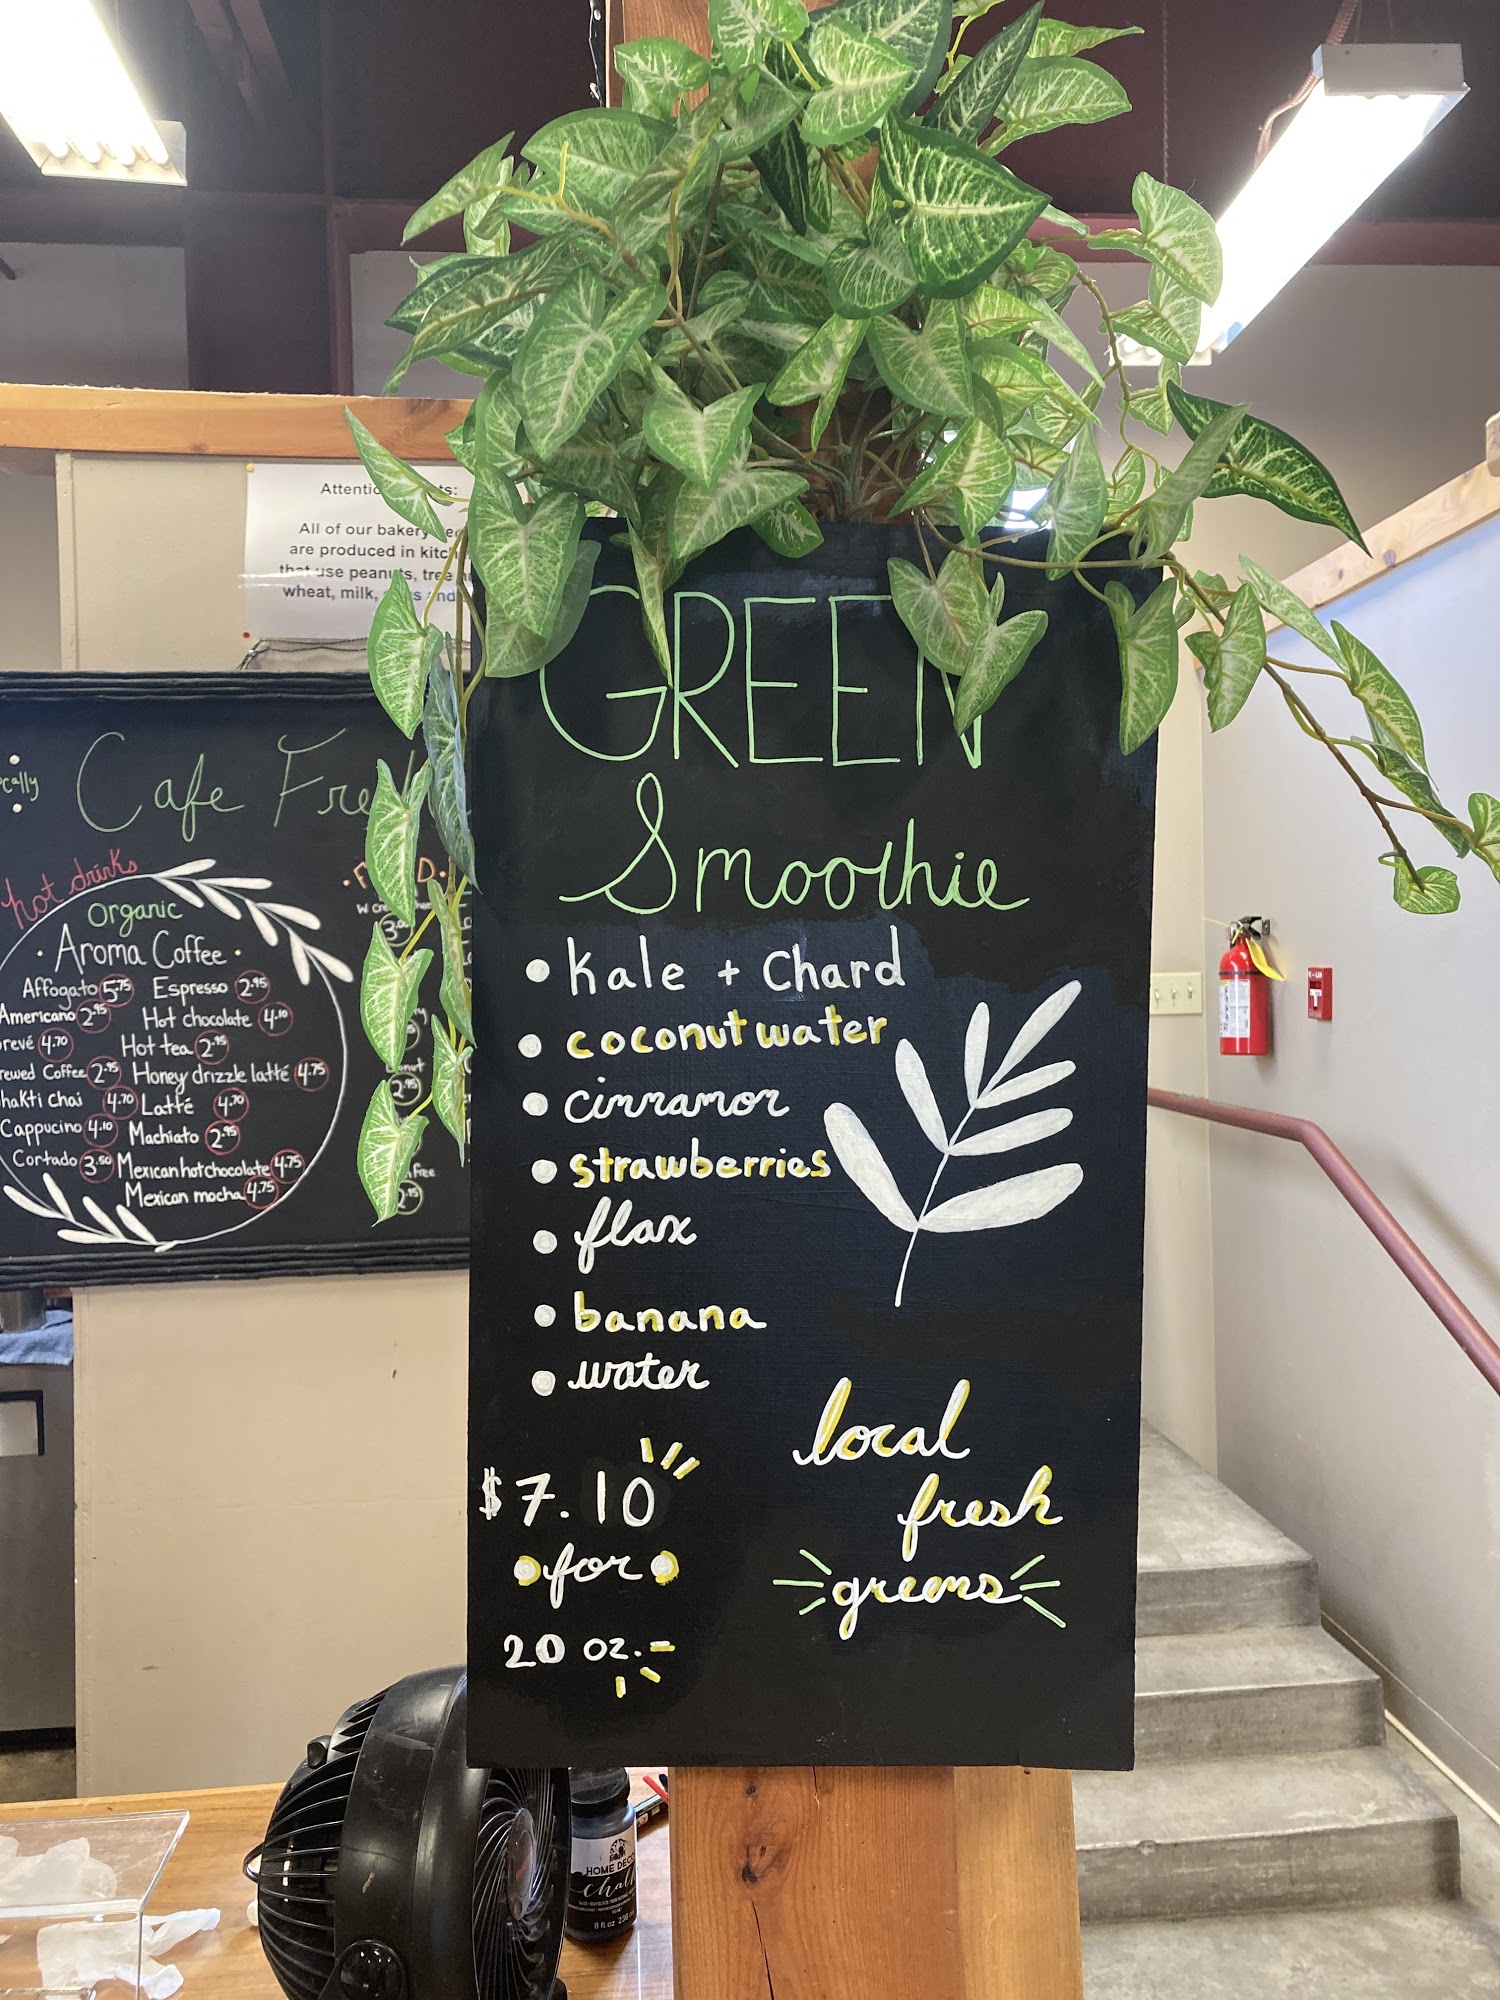 GREEN
Smoothie
Kale + Chard
coconut water
cinnamon
strawberries
flax
banana
water
$7.10
for
20 oz.
local
fresh
greens
All of our bakery
are produced in
that use peanuts, tree
wheat, milk,
Cafe
hot drinks
Organic
Aroma Coffee
Affogato 5.75
Espresso 2.95
Americano 2.95
Hot chocolate 4.10
4.70
Hot tea 2.95
Coffee 2.95
Honey drizzle latté 4.75
chai 4.70
Latté 4.70
Cappucino 4.10
Machiato 2.95
Cortado 3.50
Mexican hot chocolate 4.75
Mexican mocha 4.75
HOME DECOR
chalk
8 fl oz